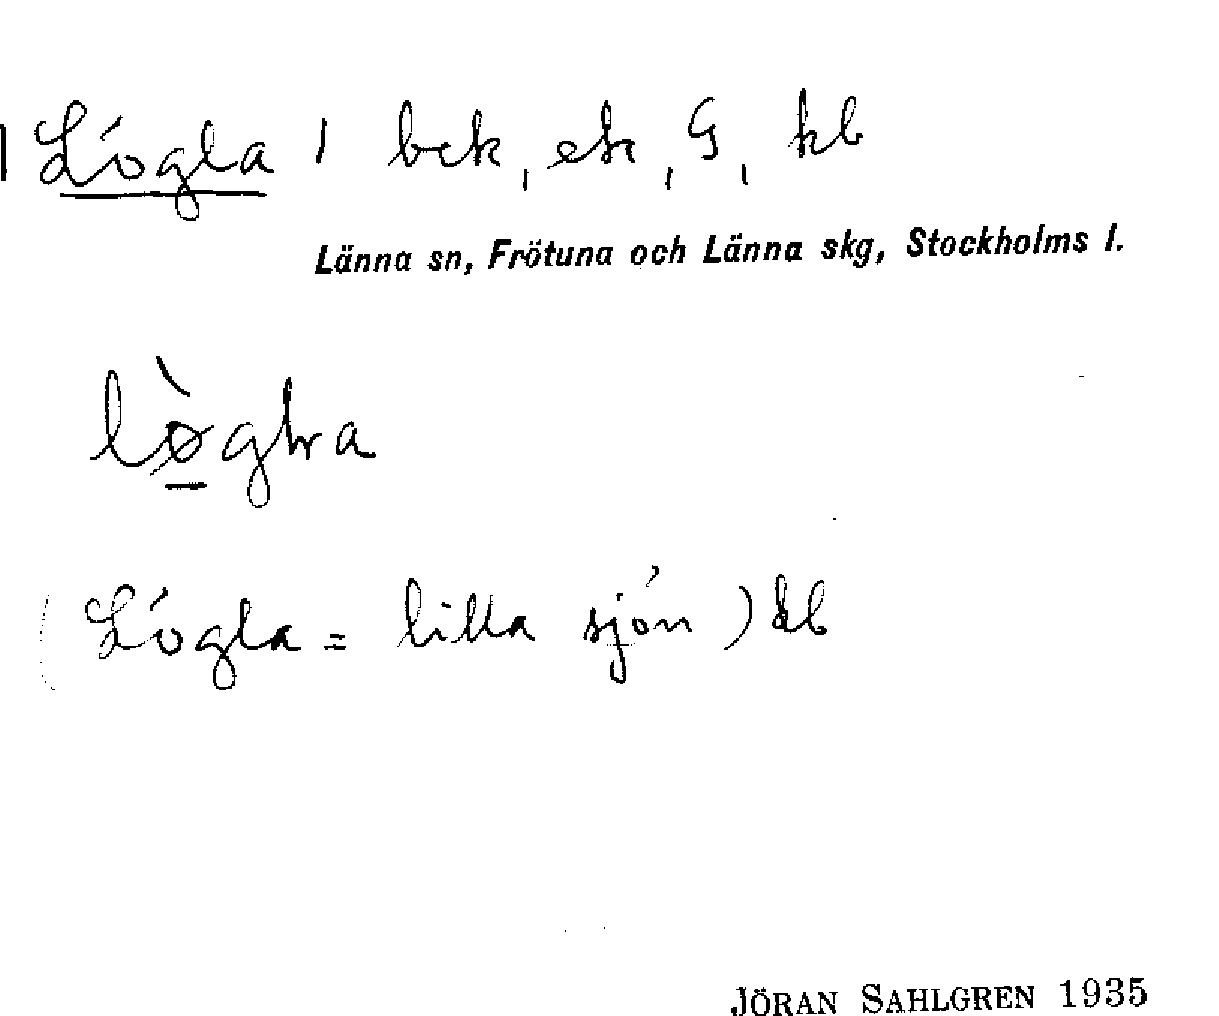 | Lögla | bck, ek, G, kb
Länna sn, Frötuna och Länna skg, Stockholms l.
lø̀gɫra
(Lögla = lilla sjön) kb
JÖRAN SAHLGREN 1935